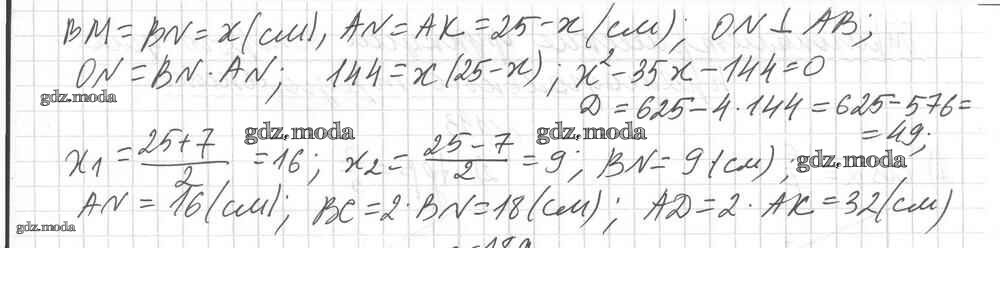 BM = BN = x (см), AN = AK = 25 - x (см); ON ⊥ AB;
ON = BN · AN; 144 = x (25 - x); x² - 35x - 144 = 0
gdz.moda
D = 625 - 4 · 144 = 625 - 576 =
= 49;
gdz.moda gdz.moda
x₁ = (25 + 7)/2 = 16; x₂ = (25 - 7)/2 = 9; BN = 9 (см);
gdz.moda
AN = 16 (см); BC = 2 · BN = 18 (см); AD = 2 · AK = 32 (см)
gdz.moda